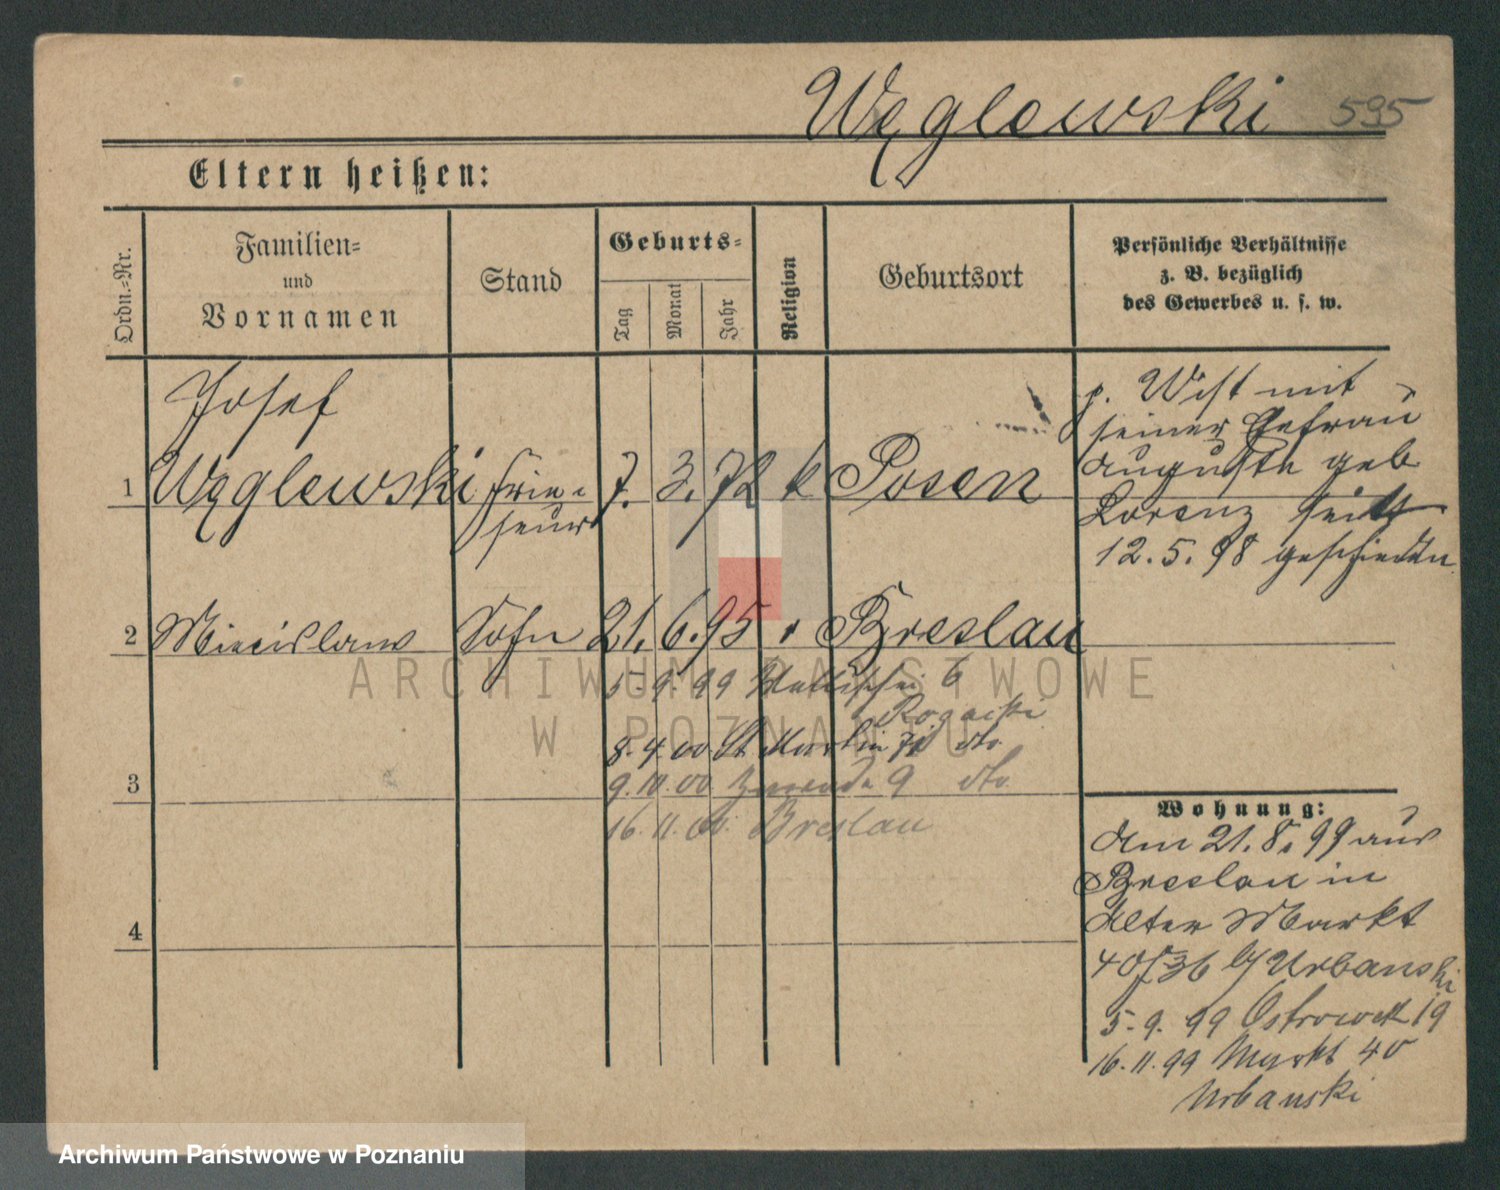 Węglewski 595
Eltern heißen:
Ordn.-Nr.
Familien-
und
Vornamen
Stand
Geburts-
Tag
Monat
Jahr
Religion
Geburtsort
Persönliche Verhältnisse
z. B. bezüglich
des Gewerbes u. s. w.
Josef
1 Węglewski Fri-
seur 7. 3. 72 k Posen
p. Wist mit
seiner Ehefrau
Auguste geb
Lorenz seit
12. 5. 98 geschieden
2 Miecislaw Sohn 21. 6. 95 " Breslau
5. 9. 99 Wallischei 6
Rogacki
8. 4. 00 St. Martin dto
3
9. 10. 00 9 dto
16. 11. 00. Breslau
4
Wohnung:
Am 21. 8. 99 aus
Breslau in
Alter Markt
40/36 b/ Urbanski
5. 9. 99 Ostrowek 19
16. 11. 99 Markt 40
Urbanski
ARCHIWUM PAŃSTWOWE
W POZNANIU
Archiwum Państwowe w Poznaniu